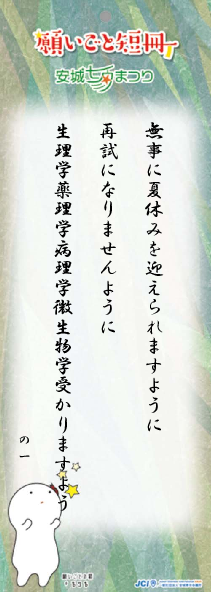 願いごと短冊
安城七夕まつり
無事に夏休みを迎えられますように
再試になりませんように
生理学薬理学病理学微生物学受かりますよう
の一
JCI